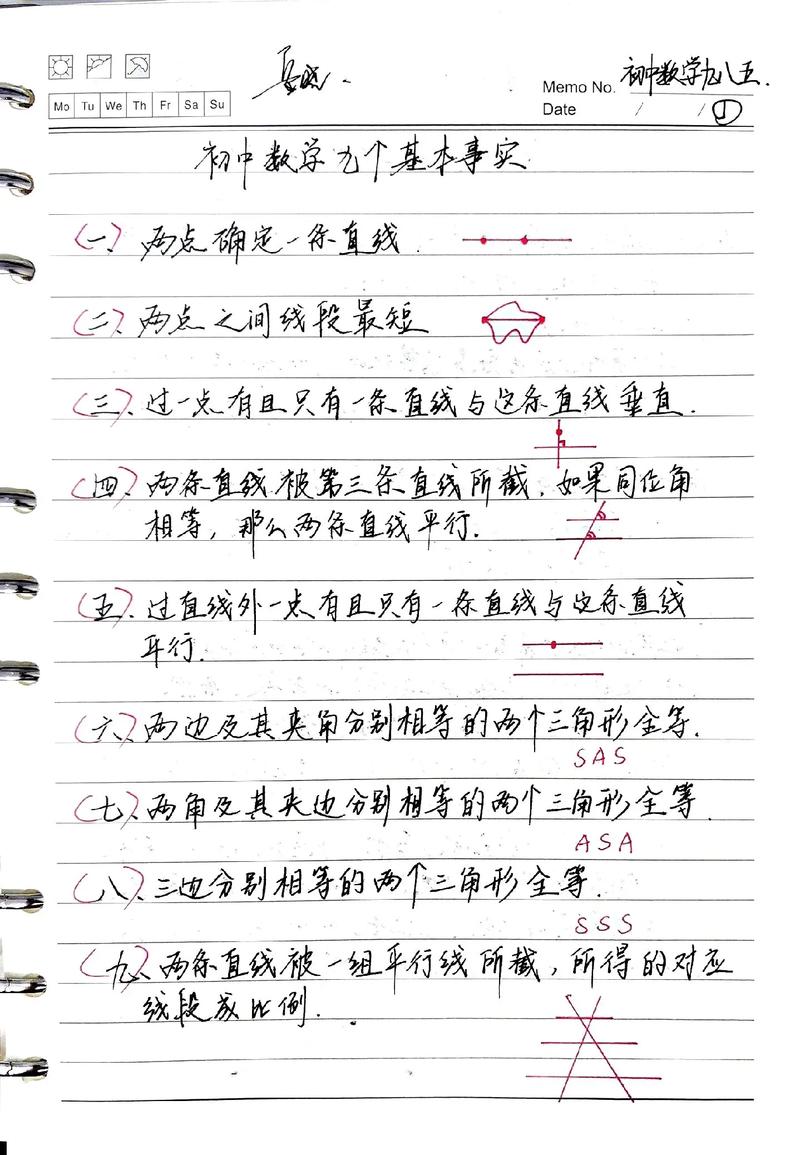 初中数学九八五.
Memo No.
Mo Tu We Th Fr Sa Su
Date / / ①
初中数学九个基本事实
(一). 两点确定一条直线.
(二). 两点之间线段最短
(三). 过一点有且只有一条直线与这条直线垂直.
(四). 两条直线被第三条直线所截, 如果同位角
相等, 那么两条直线平行.
(五). 过直线外一点有且只有一条直线与这条直线
平行.
(六). 两边及其夹角分别相等的两个三角形全等.
SAS
(七). 两角及其夹边分别相等的两个三角形全等.
ASA
(八). 三边分别相等的两个三角形全等.
SSS
(九). 两条直线被一组平行线所截, 所得的对应
线段成比例.